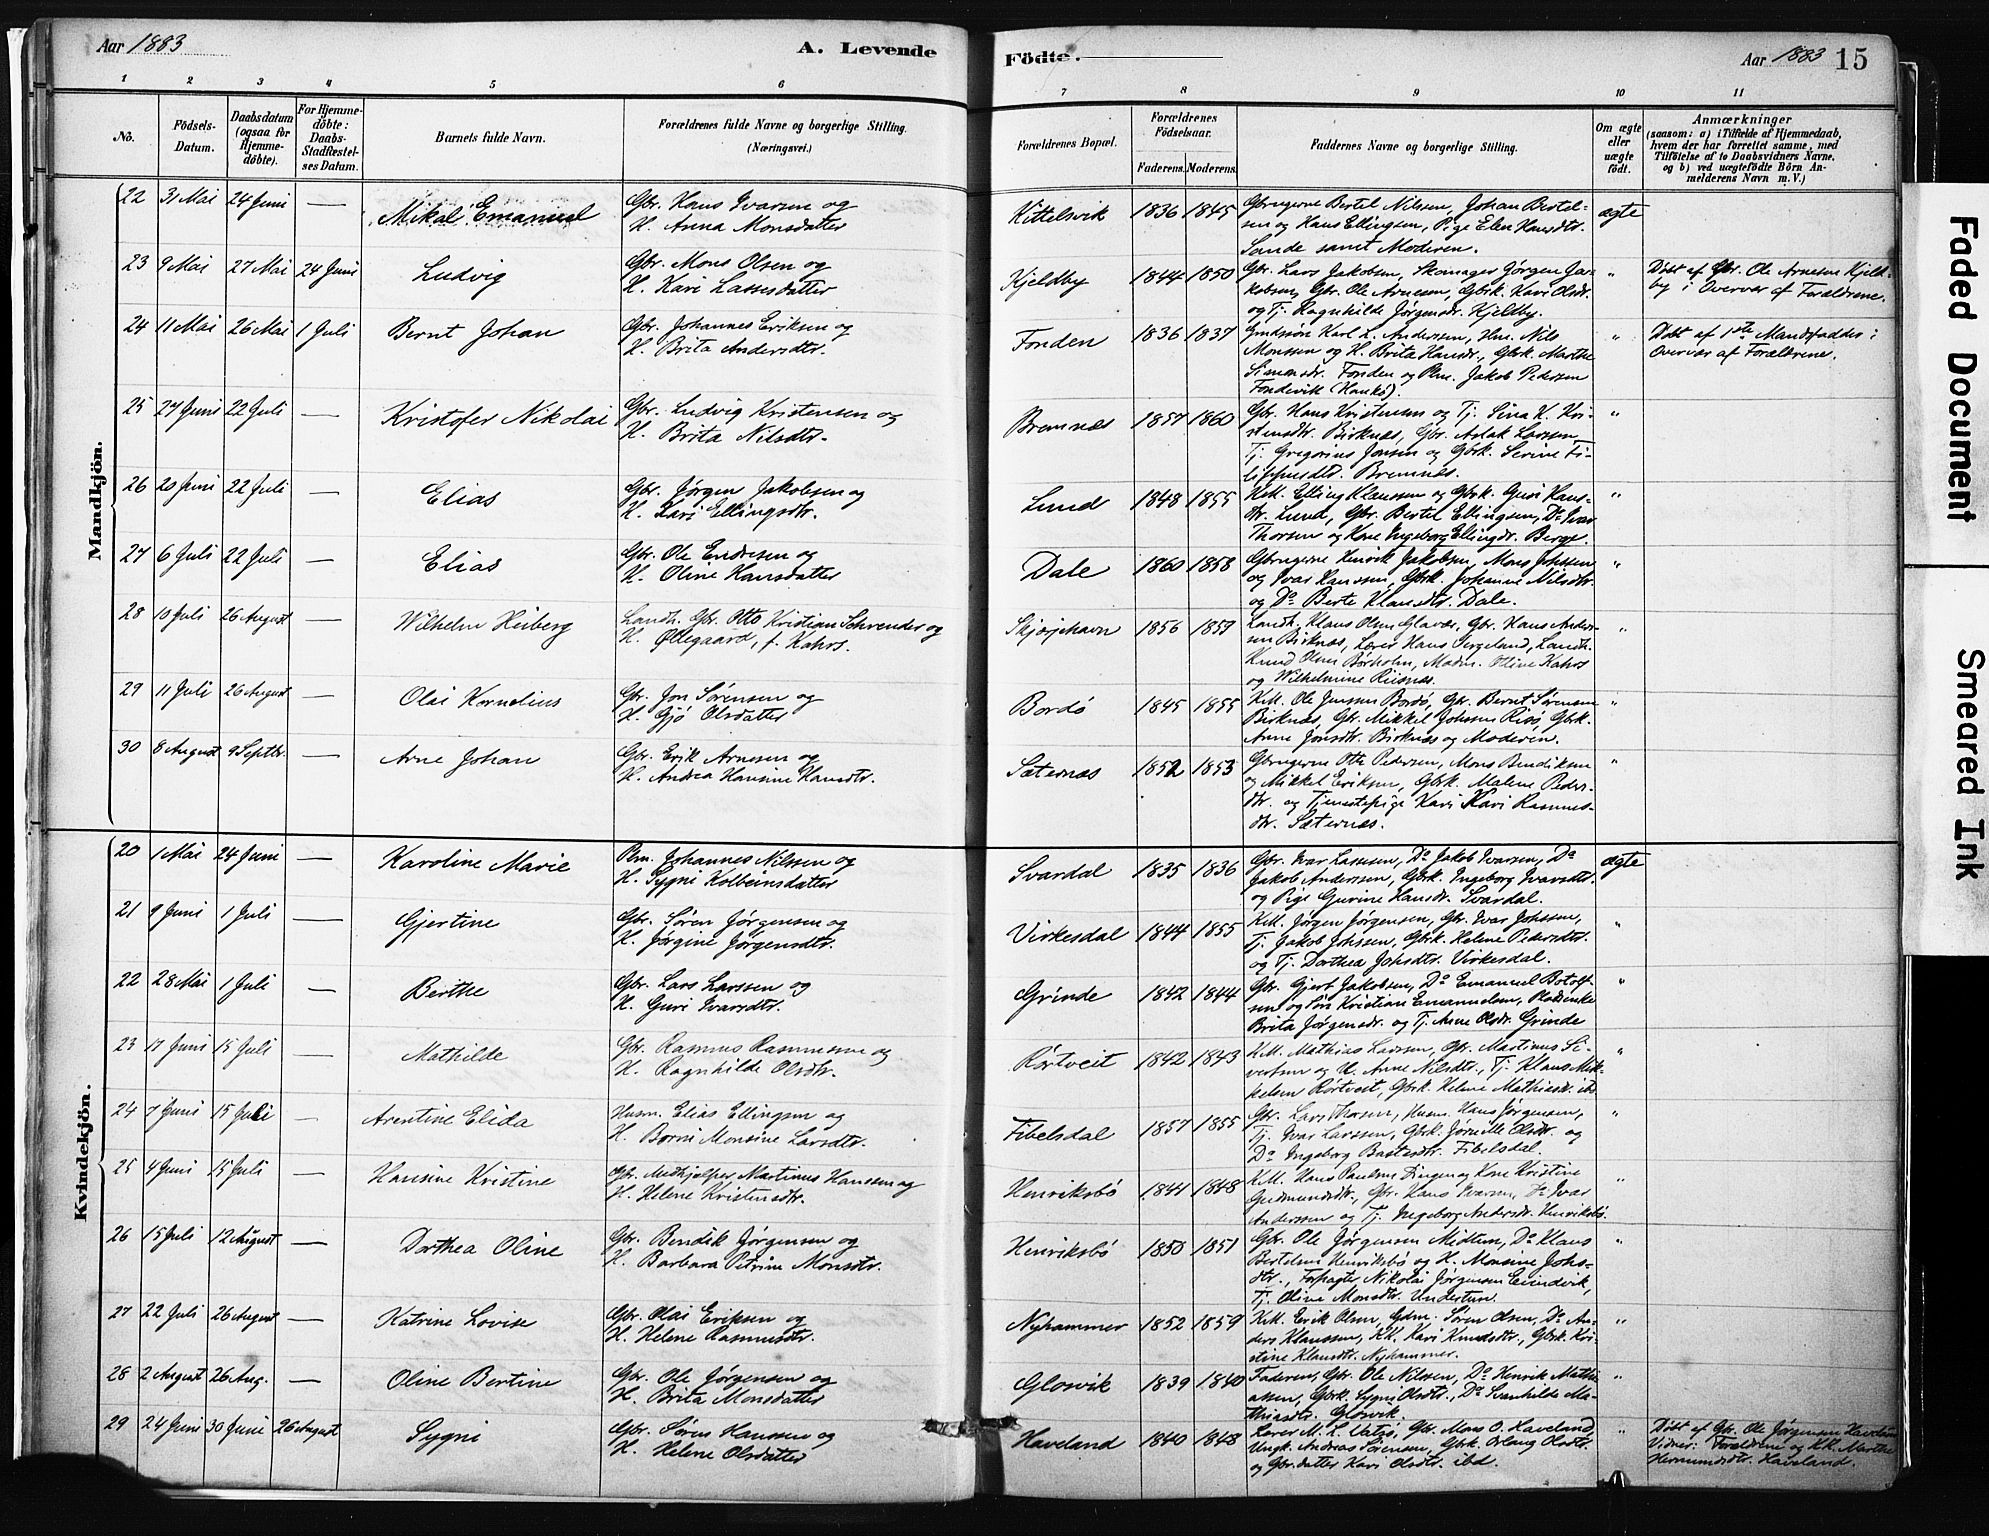 Aar 1883
A. Levende
Födte.
Aar 1883
15
1 2 3 4 5 6 7 8 9 10 11
No.
Födsels-Datum.
Daabsdatum (ogsaa for Hjemmedöbte).
For Hjemmedöbte: Daabs-Stadfæstelses Datum.
Barnets fulde Navn.
Forældrenes fulde Navne og borgerlige Stilling.
(Næringsvei.)
Forældrenes Bopæl.
Forældrenes Födselsaar.
Faderens. Moderens.
Faddernes Navne og borgerlige Stilling.
Om ægte eller uægte födt.
Anmærkninger
(saasom: a) i Tilfælde af Hjemmedaab, hvem der har forrettet samme, med Tilföielse af to Daabsvidners Navne, og b) ved uægtefödte Börn Anmelderens Navn m. V.)
Mandkjön.
22 31 Mai 24 Juni — Mikal Emanuel Gbr. Hans Ivarsen og
H. Anna Monsdatter
Kittelsvik 1836 1845 Gbrugerne Bertel Nilssen, Johan Bertelsen og Hans Ellingsen, Pige Elen Hansdtr.
Sande samt Moderen.
ægte
23 9 Mai 27 Mai 24 Juni Ludvig Gbr. Mons Olsen og
H. Kari Lassesdatter
Kjeldby 1844 1850 Gbr. Lars Jakobsen, Skomager Jörgen Jakobsen, Gbr. Ole Arnesen, Gbrk. Kari Olsdtr.
og Tj. Ragnhilde Jörgensdr. Kjeldby.
" Döbt af Gbr. Ole Arnesen Kjeldby i Overvær af Forældrene.
24 11 Mai 26 Mai 1 Juli Bernt Johan Gbr. Johannes Eriksen og
H. Brita Andersdtr.
Fonden 1836 1837 Gmdssön Karl L. Anderssen, Hm. Nils
Monssen og H. Brita Hansdr., Gbrk. Marthe
Simonsdr. Fonden og Plm. Jakob Pedersen
Fondevik (Hankö).
" Döbt af 1ste Mandsfadder i
Overvær af Forældrene.
25 24 Juni 22 Juli — Kristofer Nikolai Gbr. Ludvig Kristensen og
H. Brita Nilsdtr.
Bremnæs 1857 1860 Gbr. Hans Kristensen og Tj. Sina K. Kristensdtr. Birknæs, Gbr. Aslak Larssen
Tj. Gregorius Jonsen og Gbrk. Serine Filippusdtr. Bremnæs.
"
26 20 Juni 22 Juli — Elias Gbr. Jörgen Jakobsen og
H. Kari Ellingsdtr.
Lund 1848 1855 KM. Elling Klaussen og Gbrk. Guri Hansdtr. Lund, Gbr. Bertel Ellingsen, Do Ivar
Thorsen og Kone Ingeborg Ellingsdr. Berge.
"
27 6 Juli 22 Juli — Elias Gbr. Ole Endresen og
H. Oline Hansdatter
Dale 1860 1858 Gbrugerne Henrik Jakobsen, Mons Johssen
og Ivar Hanssen, Gbrk. Johanne Nilsdtr.
og Do Berte Klausdtr. Dale.
"
28 10 Juli 26 August — Wilhelm Heiberg Landh. Gbr. Otto Kristian Schreuder og
H. Øllegaard, f. Kahrs.
Skjærjehavn 1856 1859 Landh. Klaus Olsen Glavær, Gbr. Hans Anderssen Birknæs, Lærer Hans Sergeland, Landh.
Knud Olsen Børholm, Madm. Oline Kahrs
og Wilhelmine Riisnæs.
"
29 11 Juli 26 August — Olai Kornelius Gbr. Jon Sörensen og
H. Gjö Olsdatter
Bordö 1845 1855 KM. Ole Jenssen Bordö, Gbr. Bernt Sörensen
Birknæs, Gbr. Mikkel Johssen Risö, Gbrk.
Anne Jonsdtr. Birknæs og Moderen.
"
30 8 August 9 Septbr. — Arne Johan Gbr. Erik Arnesen og
H. Andrea Hansine Hansdtr.
Sæternæs 1852 1853 Gbrugerne Otte Pedersen, Mons Bendiksen
og Mikkel Eriksen, Gbrk. Malene Pedersdtr. og Tjenestepige Kari Kari Rasmusdtr. Sæternæs.
"
Kvindekjön.
20 1 Mai 24 Juni — Karoline Marie Plm. Johannes Nilssen og
H. Sygni Kolbeinsdatter
Svardal 1835 1836 Gbr. Ivar Lassesen, Do Jakob Ivarsen, Do
Jakob Anderssen, Gbrk. Ingeborg Ivarsdtr.
og Pige Gurine Hansdtr. Svardal.
ægte
21 9 Juni 1 Juli — Gjertine Gbr. Sören Jörgensen og
H. Jörgine Jörgensdtr.
Virkesdal 1844 1855 KM. Jörgen Jörgensen, Gbr. Ivar Johssen,
Tj. Jakob Johssen, Gbrk. Helene Pedersdtr.
og Tj. Dorthea Johsdtr. Virkesdal.
"
22 28 Mai 1 Juli — Berthe Gbr. Lars Larssen og
H. Guri Ivarsdtr.
Grinde 1842 1844 Gbr. Gjert Jakobsen, Do Emanuel Botolfsen og Sön Kristian Emanuelsen, Pladsenke
Brita Jörgensdr. og Tj. Anne Olsdr. Grinde
"
23 17 Juni 15 Juli — Mathilde Gbr. Rasmus Rasmussen og
H. Ragnhilde Olsdtr.
Rörtveit 1842 1843 KM. Mathias Larssen, Gbr. Martinus Sivertsen og H. Anne Nilsdtr., Tj. Klaus Mikkelsen Rörtveit, Gbrk. Helene Mathiesdr. ibd
"
24 7 Juni 15 Juli — Arentine Elida Husm. Elias Ellingsen og
H. Borni Monsine Larsdtr.
Fibelsdal 1857 1855 Gbr. Lars Thorsen, Husm. Hans Jörgensen,
Tj. Ivar Larssen, Gbrk. Jörnille Olsdtr. og
Do Ingeborg Bastesdtr. Fibelsdal.
"
25 4 Juni 15 Juli — Hansine Kristine Gbr. Medhjelper Martinus Hanssen og
H. Helene Kristensdtr.
Henriksbö 1841 1848 KM. Hans Paulsen Dingen og Kone Kristine
Gudmundsdtr., Gbr. Hans Ivarsen, Do Ivar
Anderssen og Tj. Ingeborg Andersdr. Henriksbö.
"
26 15 Juli 12 August — Dorthea Oline Gbr. Bendik Jörgensen og
H. Barbara Petrine Monsdtr.
Henriksbö 1850 1851 Gbr. Ole Jörgensen Midtun, Do Klaus
Bertelsen Henriksbö og H. Monsine Johsdtr., Forpagter Nikolai Jörgensen Eivindvik,
Tj. Oline Monsdtr. Undertun.
"
27 22 Juli 26 August — Katrine Lovise Gbr. Olai Eriksen og
H. Helene Rasmusdtr.
Nyhammer 1852 1859 KM. Erik Olsen, Gdm. Sören Olsen, Do Anders Klaussen, KK. Kari Knudsdtr., Gbrk. Kristine Klausdtr. Nyhammer.
"
28 2 August 26 Aug. — Oline Bertine Gbr. Ole Jörgensen og
H. Brita Monsdatter
Glosvik 1839 1840 Faderen, Gbr. Ole Nilssen, Do Henrik Mathiassen, Gbrk. Sygni Olsdtr., Do Svanhilde Mathiasdtr. Glosvik.
"
29 24 Juni 30 Juni 26 August Sygni Gbr. Sören Hanssen og
H. Helene Olsdatter
Haveland 1840 1848 Lærer M. L. Vatsö, Gbr. Mons O. Haveland,
Ungk. Andreas Sörensen, Gbrk. Orlaug Olsdtr.
og Gbr.datter Kari Olsdtr. ibd.
" Döbt af Gbr. Ole Jörgensen Haveland
Vidner: Forældrene og KK. Marthe
Hermundsdtr. Haveland.
Faded Document
Smeared Ink